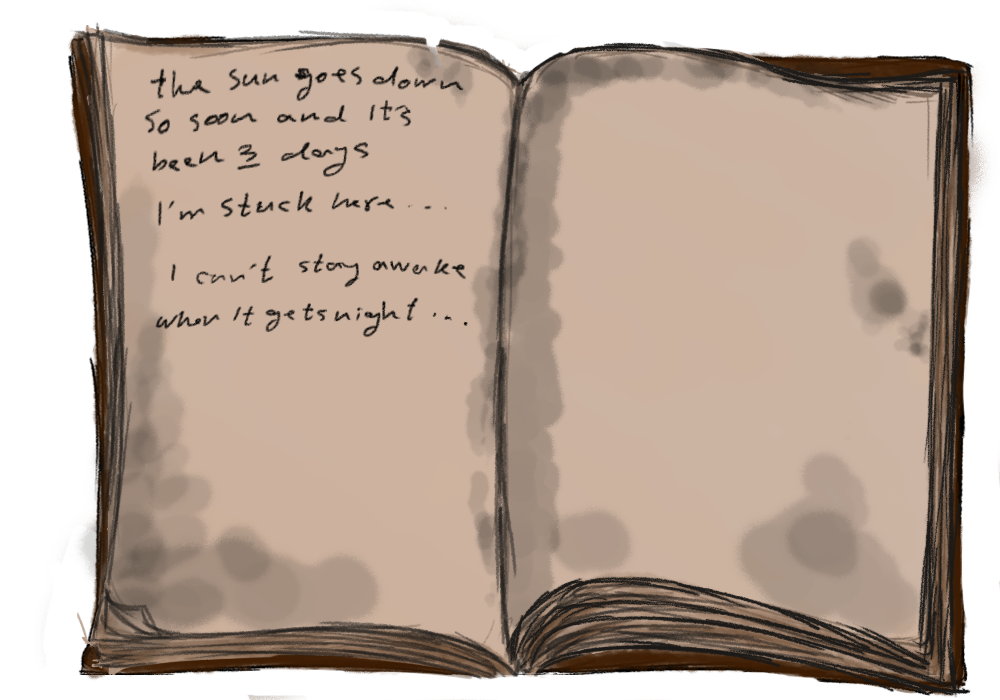 the sun goes down
so soon and It's
been 3 days
I'm stuck here...
I can't stay awake
when It gets night...